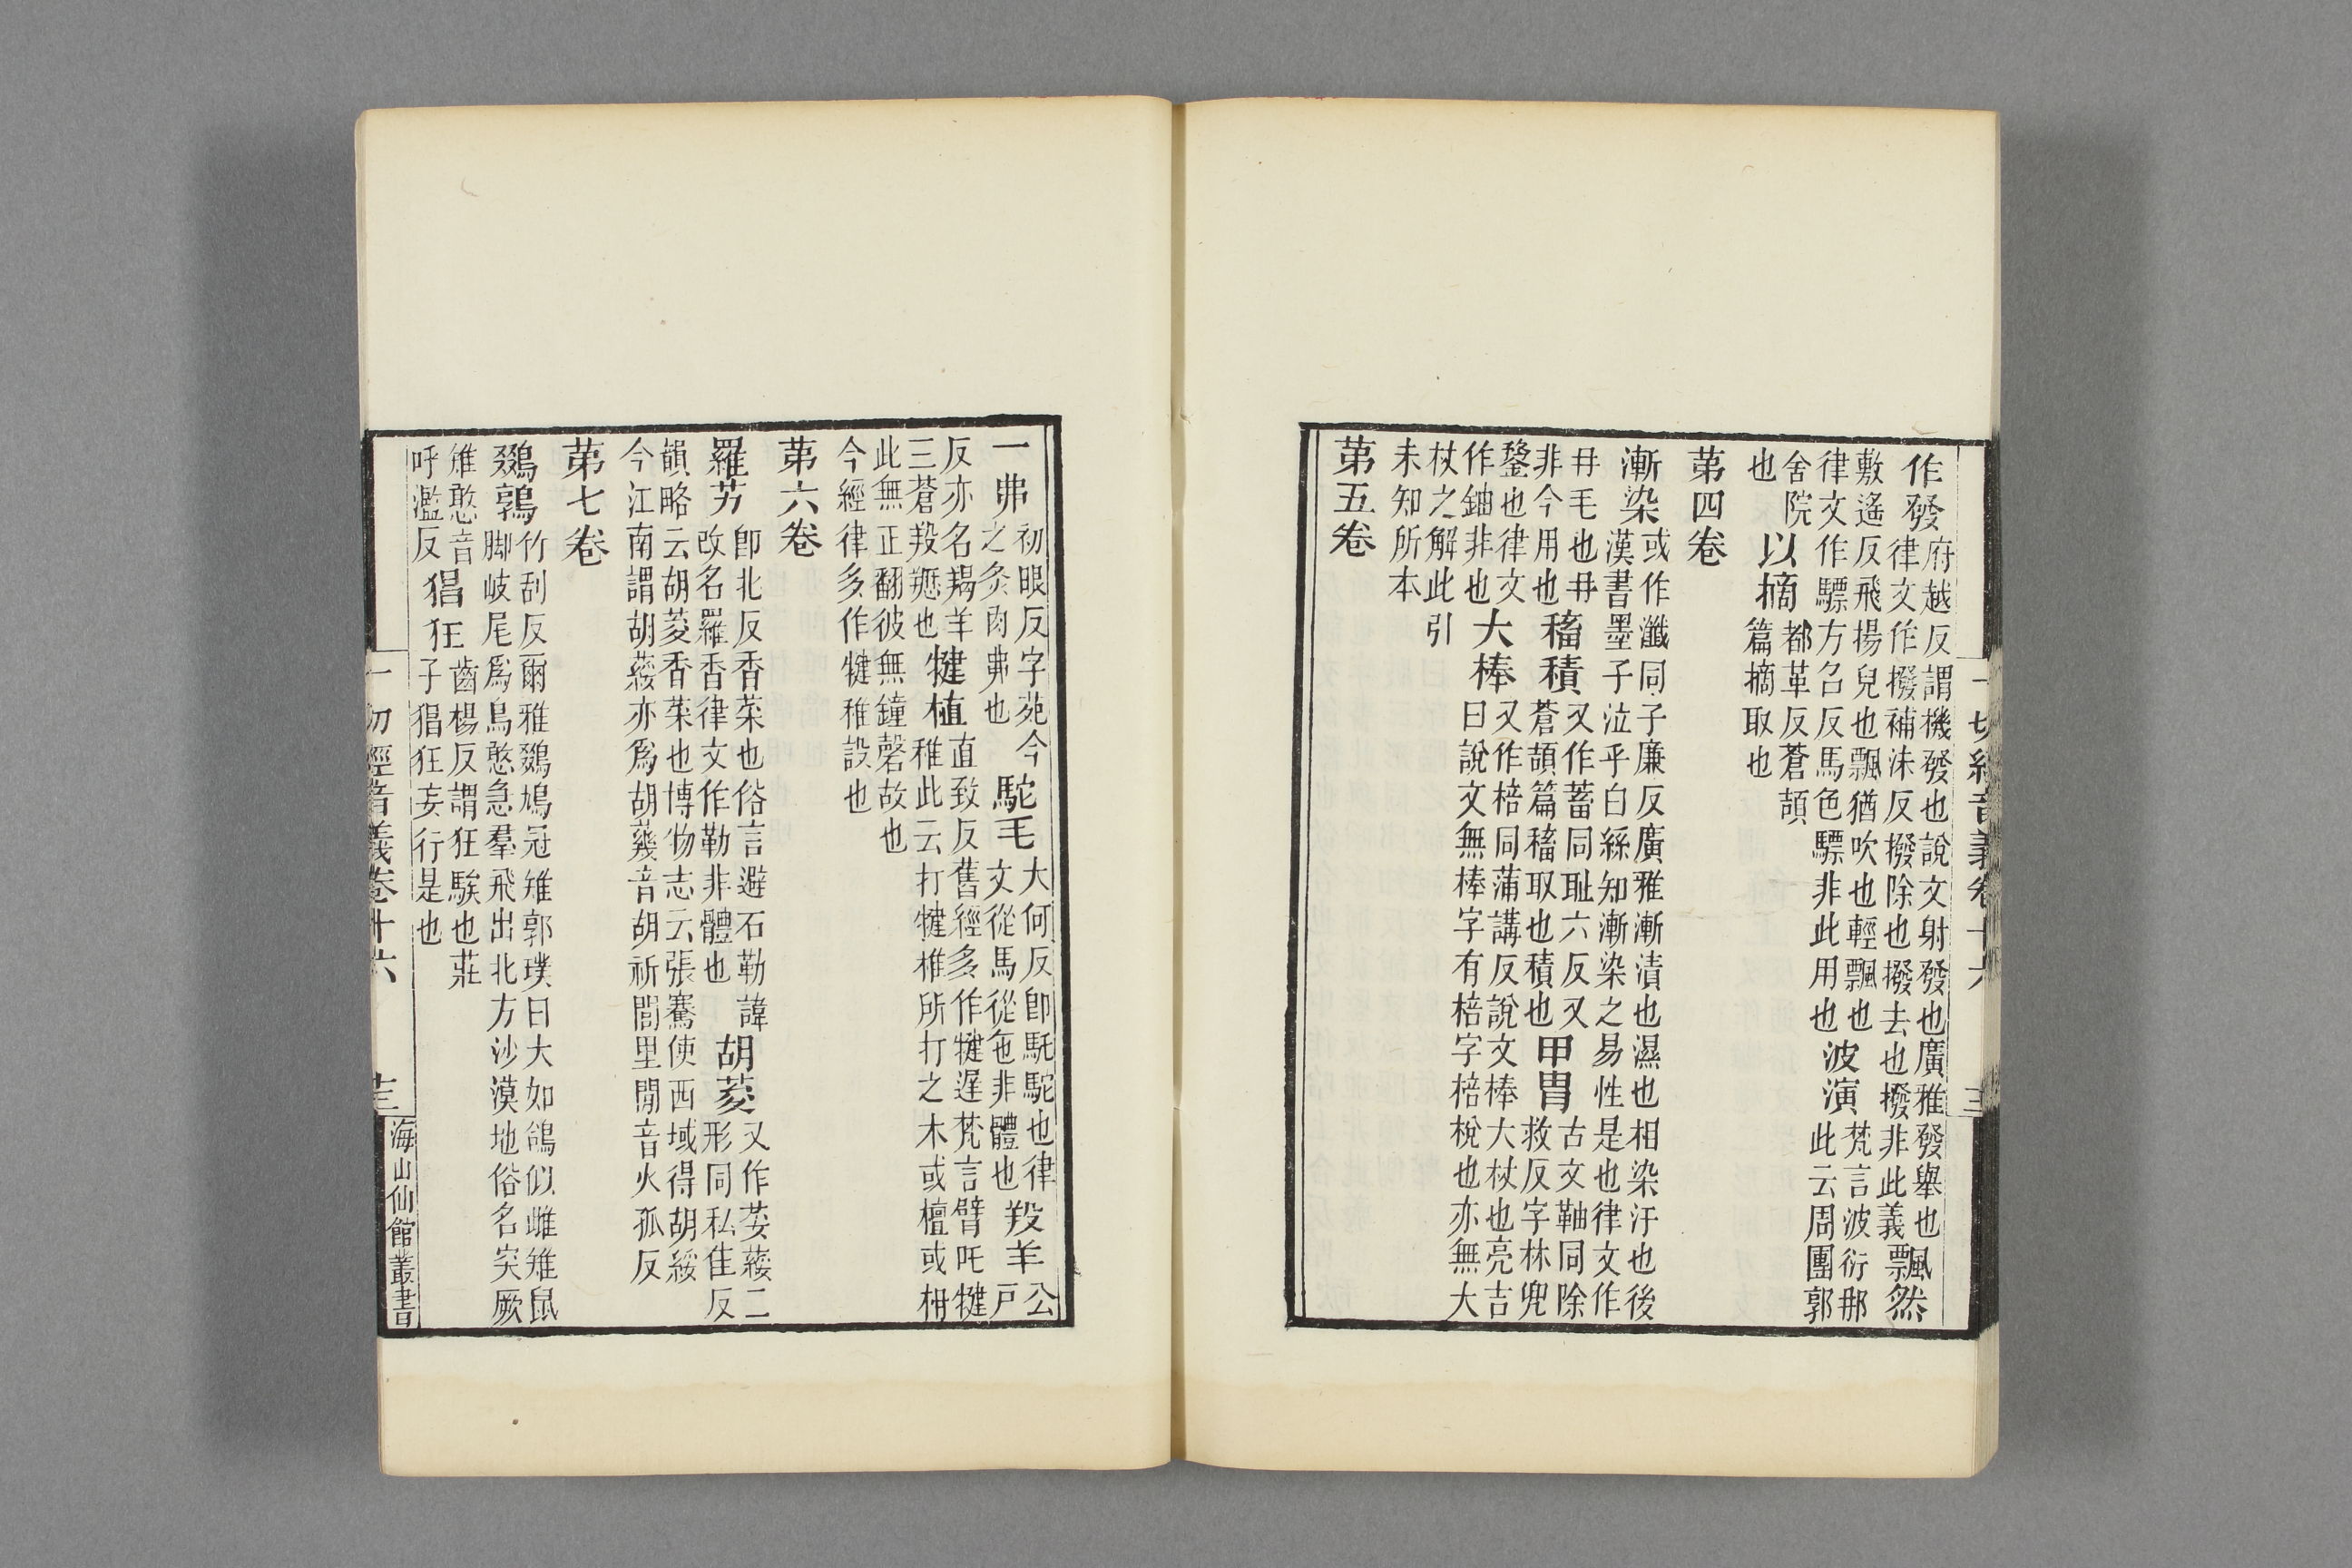 作發府越反謂機發也說文射發也廣雅發舉也飄然
律文作撥補沬反撥除也撥去也撥非此義
敷遙反飛揚皃也飄猶吹也輕飄也波演梵言波衍那
律文作驃方召反馬色驃非此用也此云周團郭
舍院以摘都革反蒼頡
也篇摘取也
第四卷
漸染或作瀸同子廉反廣雅漸漬也濕也相染汙也後
漢書墨子泣乎白絲知漸染之易性是也律文作
冄毛也冄稸積又作蓄同耻六反又甲冑古文䩜同除
非今用也蒼頡篇稸取也積也救反字林兜
鍪也律文大棒又作棓同蒲講反說文棒大杖也亮吉
作鈾非也曰說文無棒字有棓字棓梲也亦無大
杖之解此引
未知所本
第五卷
一切經音義卷十六
三
一弗初眼反字苑今駝毛大何反卽駞駝也律羖羊公
之炙肉弗也文從馬從㐌非體也戶
反亦名羯羊犍植直致反舊經多作犍遲梵言臂吒犍
三蒼羖䍽也稚此云打犍椎所打之木或檀或柟
此無正翻彼無鐘磬故也
今經律多作犍稚設也
第六卷
羅艻卽北反香菜也俗言避石勒諱胡荾又作荽葰二
改名羅香律文作勒非體也形同私隹反
韻略云胡荾香菜也博物志云張騫使西域得胡綏
今江南謂胡葰亦爲胡䕤音胡祈閭里閒音火孤反
第七卷
鵽鶉竹刮反爾雅鵽鳩冠雉郭璞曰大如鴿似雌雉鼠
脚岐尾爲鳥憨急羣飛出北方沙漠地俗名突厥
雉憨音
呼濫反猖狂齒楊反謂狂騃也莊
子猖狂妄行是也
一切經音義卷十六
海山仙館叢書